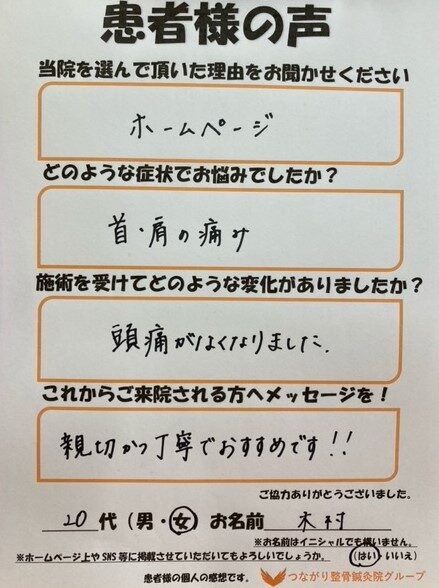 患者様の声
当院を選んで頂いた理由をお聞かせください
ホームページ
どのような症状でお悩みでしたか？
首・肩の痛み
施術を受けてどのような変化がありましたか？
頭痛がなくなりました.
これからご来院される方へメッセージを！
親切かつ丁寧でおすすめです!!
ご協力ありがとうございました。
20 代（男・女）お名前 木村
※お名前はイニシャルでも構いません。
※ホームページ上やSNS等に掲載させていただいてもよろしいでしょうか。（はい・いいえ）
患者様の個人の感想です。 つながり整骨鍼灸院グループ